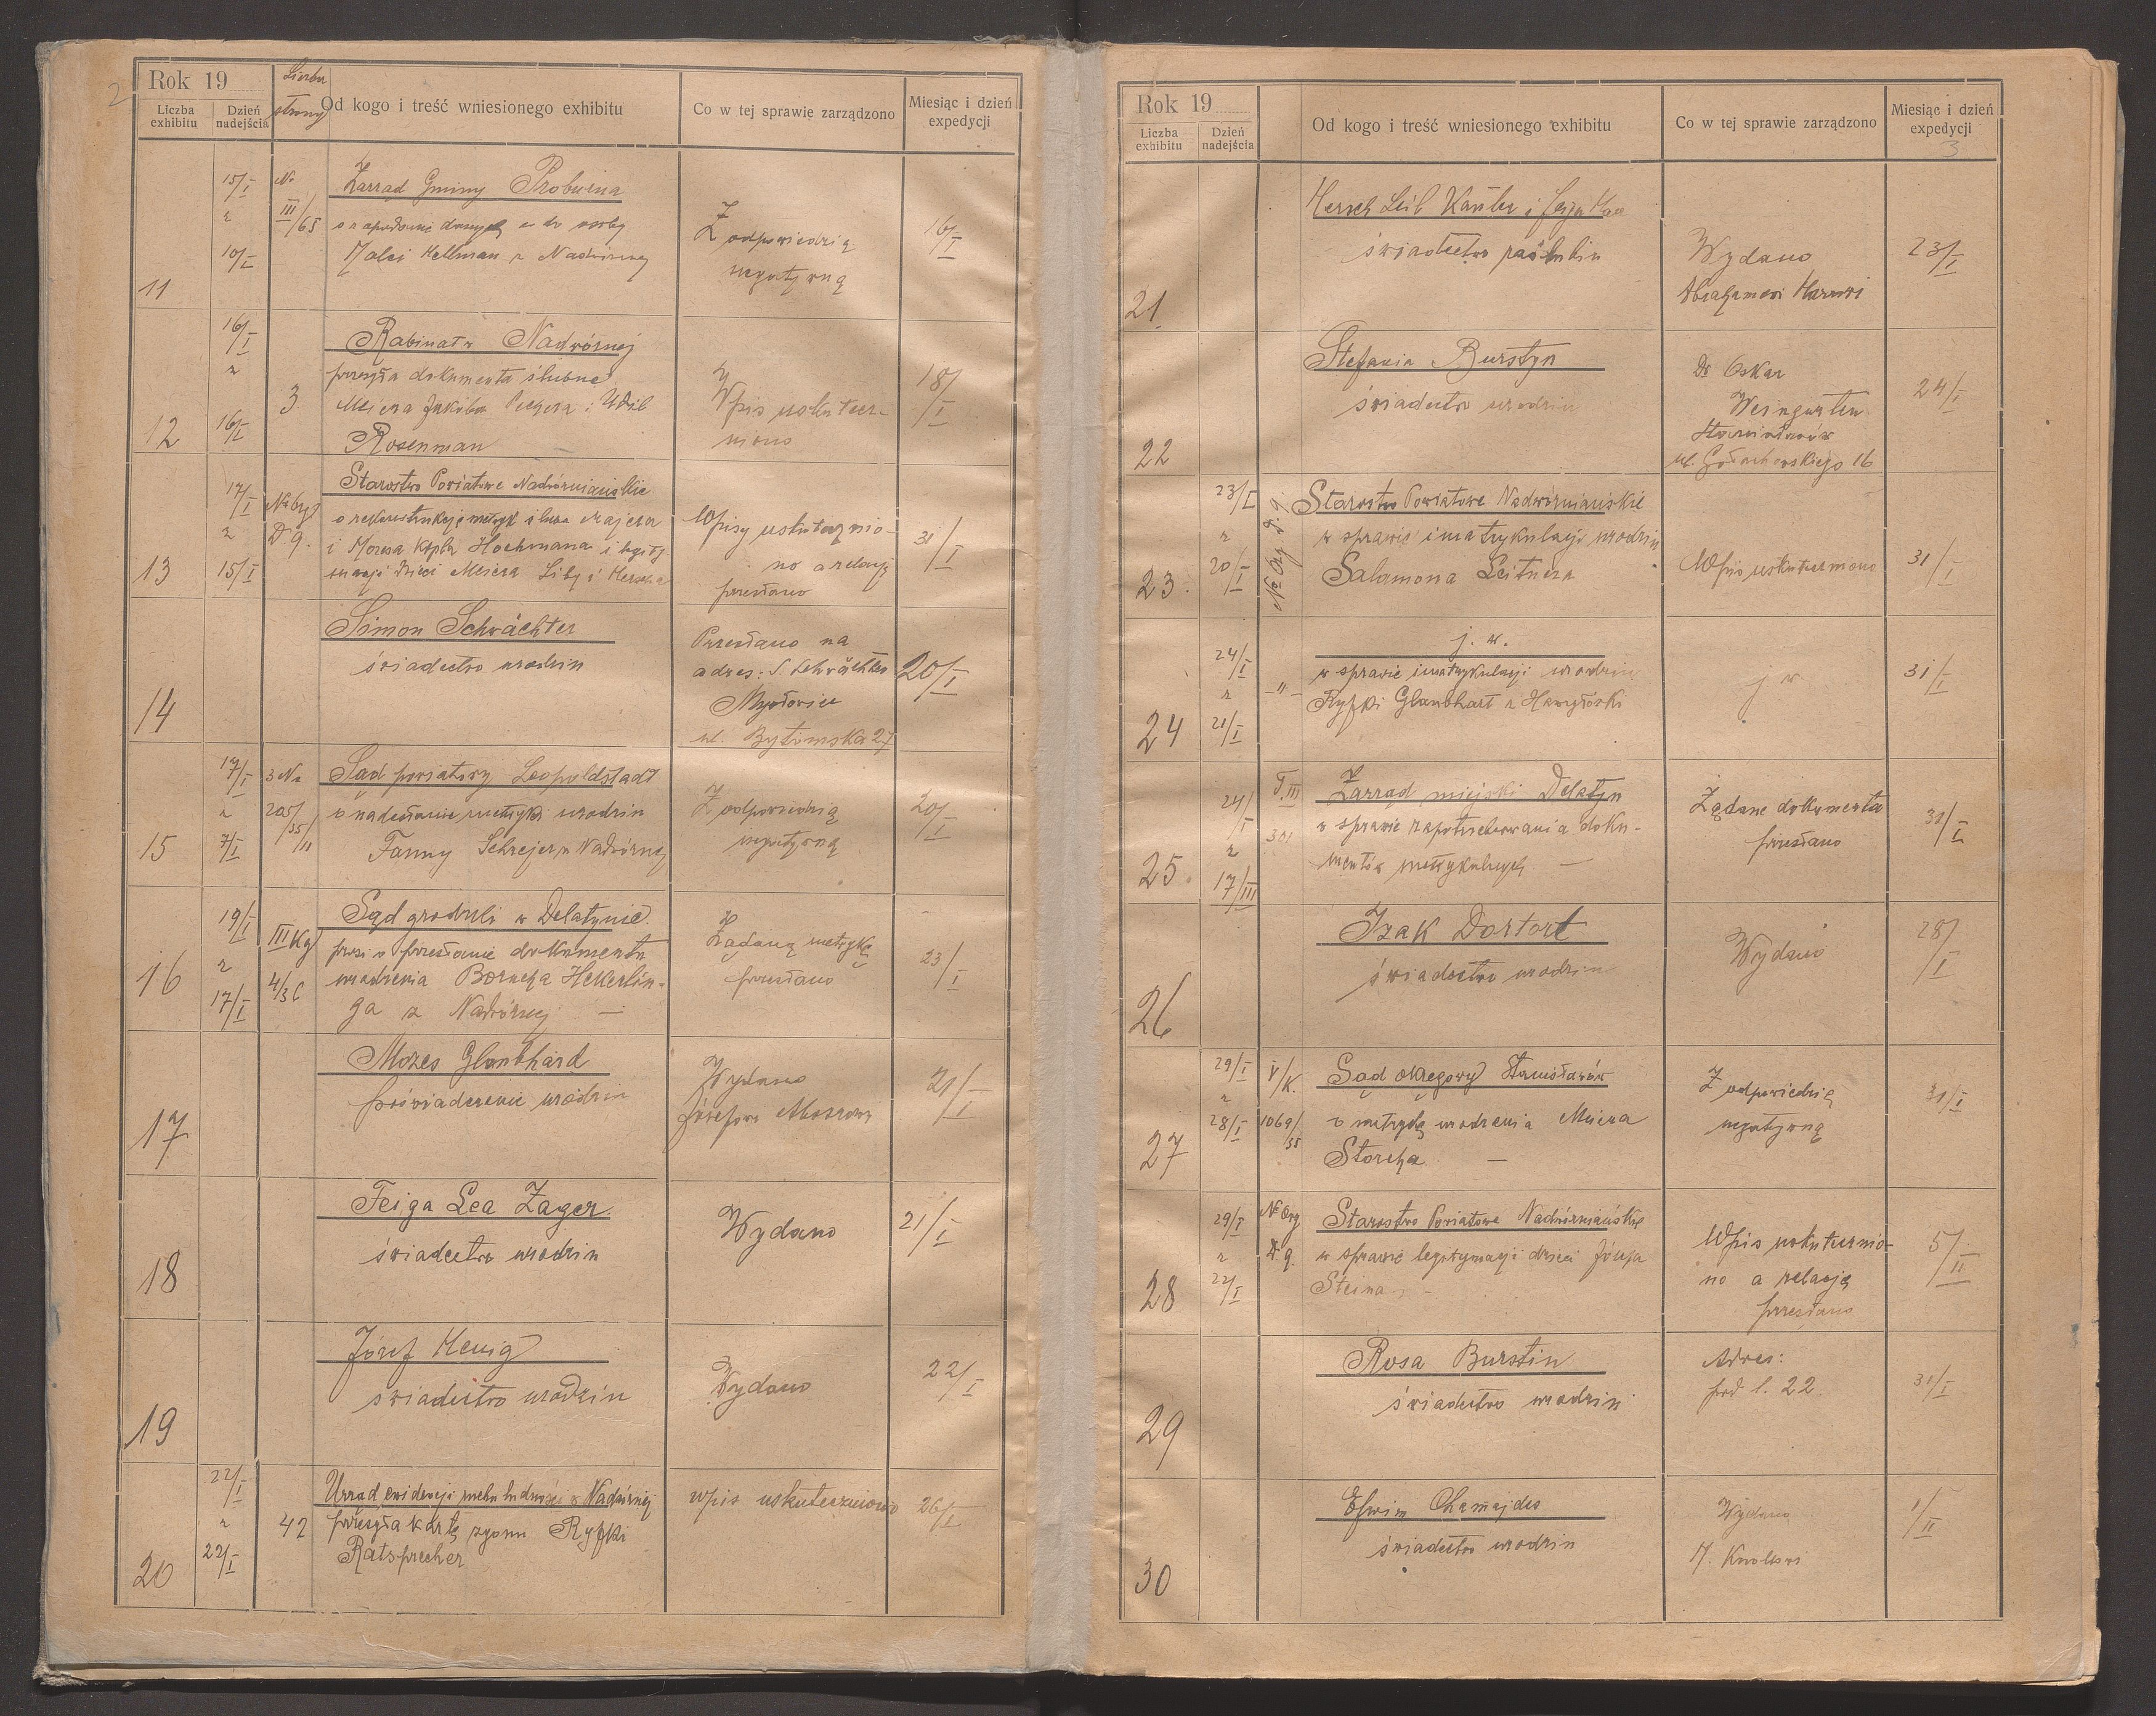 2
Rok 19
Liczba exhibitu
Dzień nadejścia
Liczba strony
Od kogo i treść wniesionego exhibitu
Co w tej sprawie zarządzono
Miesiąc i dzień expedycji
11
15/I
z
10/I
No
III/65
Zarząd Gminy Probużna
Malci Hellman z Nadwórnej
Z odpowiedzią
negatywną
16/I
12
16/I
z
16/I
3
Rabinat w Nadwórnej
przesyła dokumenta ślubne
Meiera Jakóba i Udil
Rosenman
Wpis uskutecz-
niono
18/I
13
17/I
z
15/I
Starostwo Powiatowe Nadwórniańskie
i Mozesa Hochmana i legity-
macji dzieci Meiera Liby i Hersona
Wpisy uskutecznio-
no a relację
przesłano
31/I
14
Simon Schwächter
świadectwo urodzin
Przesłano na
adres: S. Schwächter
Mysłowice
ul. Bytomska 27
20/I
15
17/I
z
7/I
3 Nc
205/35/11
Sąd powiatowy Leopoldstadt
o nadesłanie metryki urodzin
Fanny Schrejer z Nadwórnej
Z odpowiedzią
negatywną
20/I
16
19/I
z
17/I
III Kg
4/36
Sąd grodzki w Delatynie
prosi o przesłanie dokumentu
urodzenia Borucha Hekerlin-
ga z Nadwórnej —
Żądaną metrykę
przesłano
23/I
17
Mozes Glanbhard
poświadczenie urodzin
Wydano
21/I
18
Feiga Lea Zager
świadectwo urodzin
Wydano
21/I
19
Józef Henig
świadectwo urodzin
Wydano
22/I
20
22/I
z
22/I
42
Urząd ewidencji ruchu ludności w Nadwórnej
przesyła kartę zgonu Ryfki
Ratsprecher
wpis uskuteczniono
26/I
3
Rok 19
Liczba exhibitu
Dzień nadejścia
Od kogo i treść wniesionego exhibitu
Co w tej sprawie zarządzono
Miesiąc i dzień expedycji
21
Hersch Leib
świadectwo zaślubin
Wydano
23/I
22
Stefania Burstyn
świadectwo urodzin
Dr Oskar
Weingarten
Stanisławów
ul. Gołuchowskiego 16
24/I
23
23/I
z
20/I
Starostwo Powiatowe Nadwórniańskie
w sprawie imatrykulacji urodzin
Salamona Leitnera
Wpis uskuteczniono
31/I
24
24/I
z
21/I
—"—
j. w.
w sprawie imatrykulacji urodzin
Ryfki Glanbhart z
j w
31/I
25
24/I
z
17/III
T. III
301
Zarząd miejski Delatyn
w sprawie zapotrzebowania doku-
mentów metrykalnych —
Żądane dokumenta
przesłano
31/I
26
Izak Dortort
świadectwo urodzin
Wydano
28/I
27
29/I
z
28/I
V/K.
1069/35
Sąd okręgowy Stanisławów
o metrykę urodzenia Meiera
Storcha —
Z odpowiedzią
negatywną
31/I
28
29/I
z
22/I
No Org
D. 9.
Starostwo Powiatowe Nadwórniańskie
w sprawie legitymacji dzieci Józefa
Steina
Wpis uskutecznio-
no a relację
przesłano
5/II
29
Rosa Burstin
świadectwo urodzin
Adres:
pod l. 22
31/I
30
Efroim Chamajdes
świadectwo urodzin
Wydano
1/II